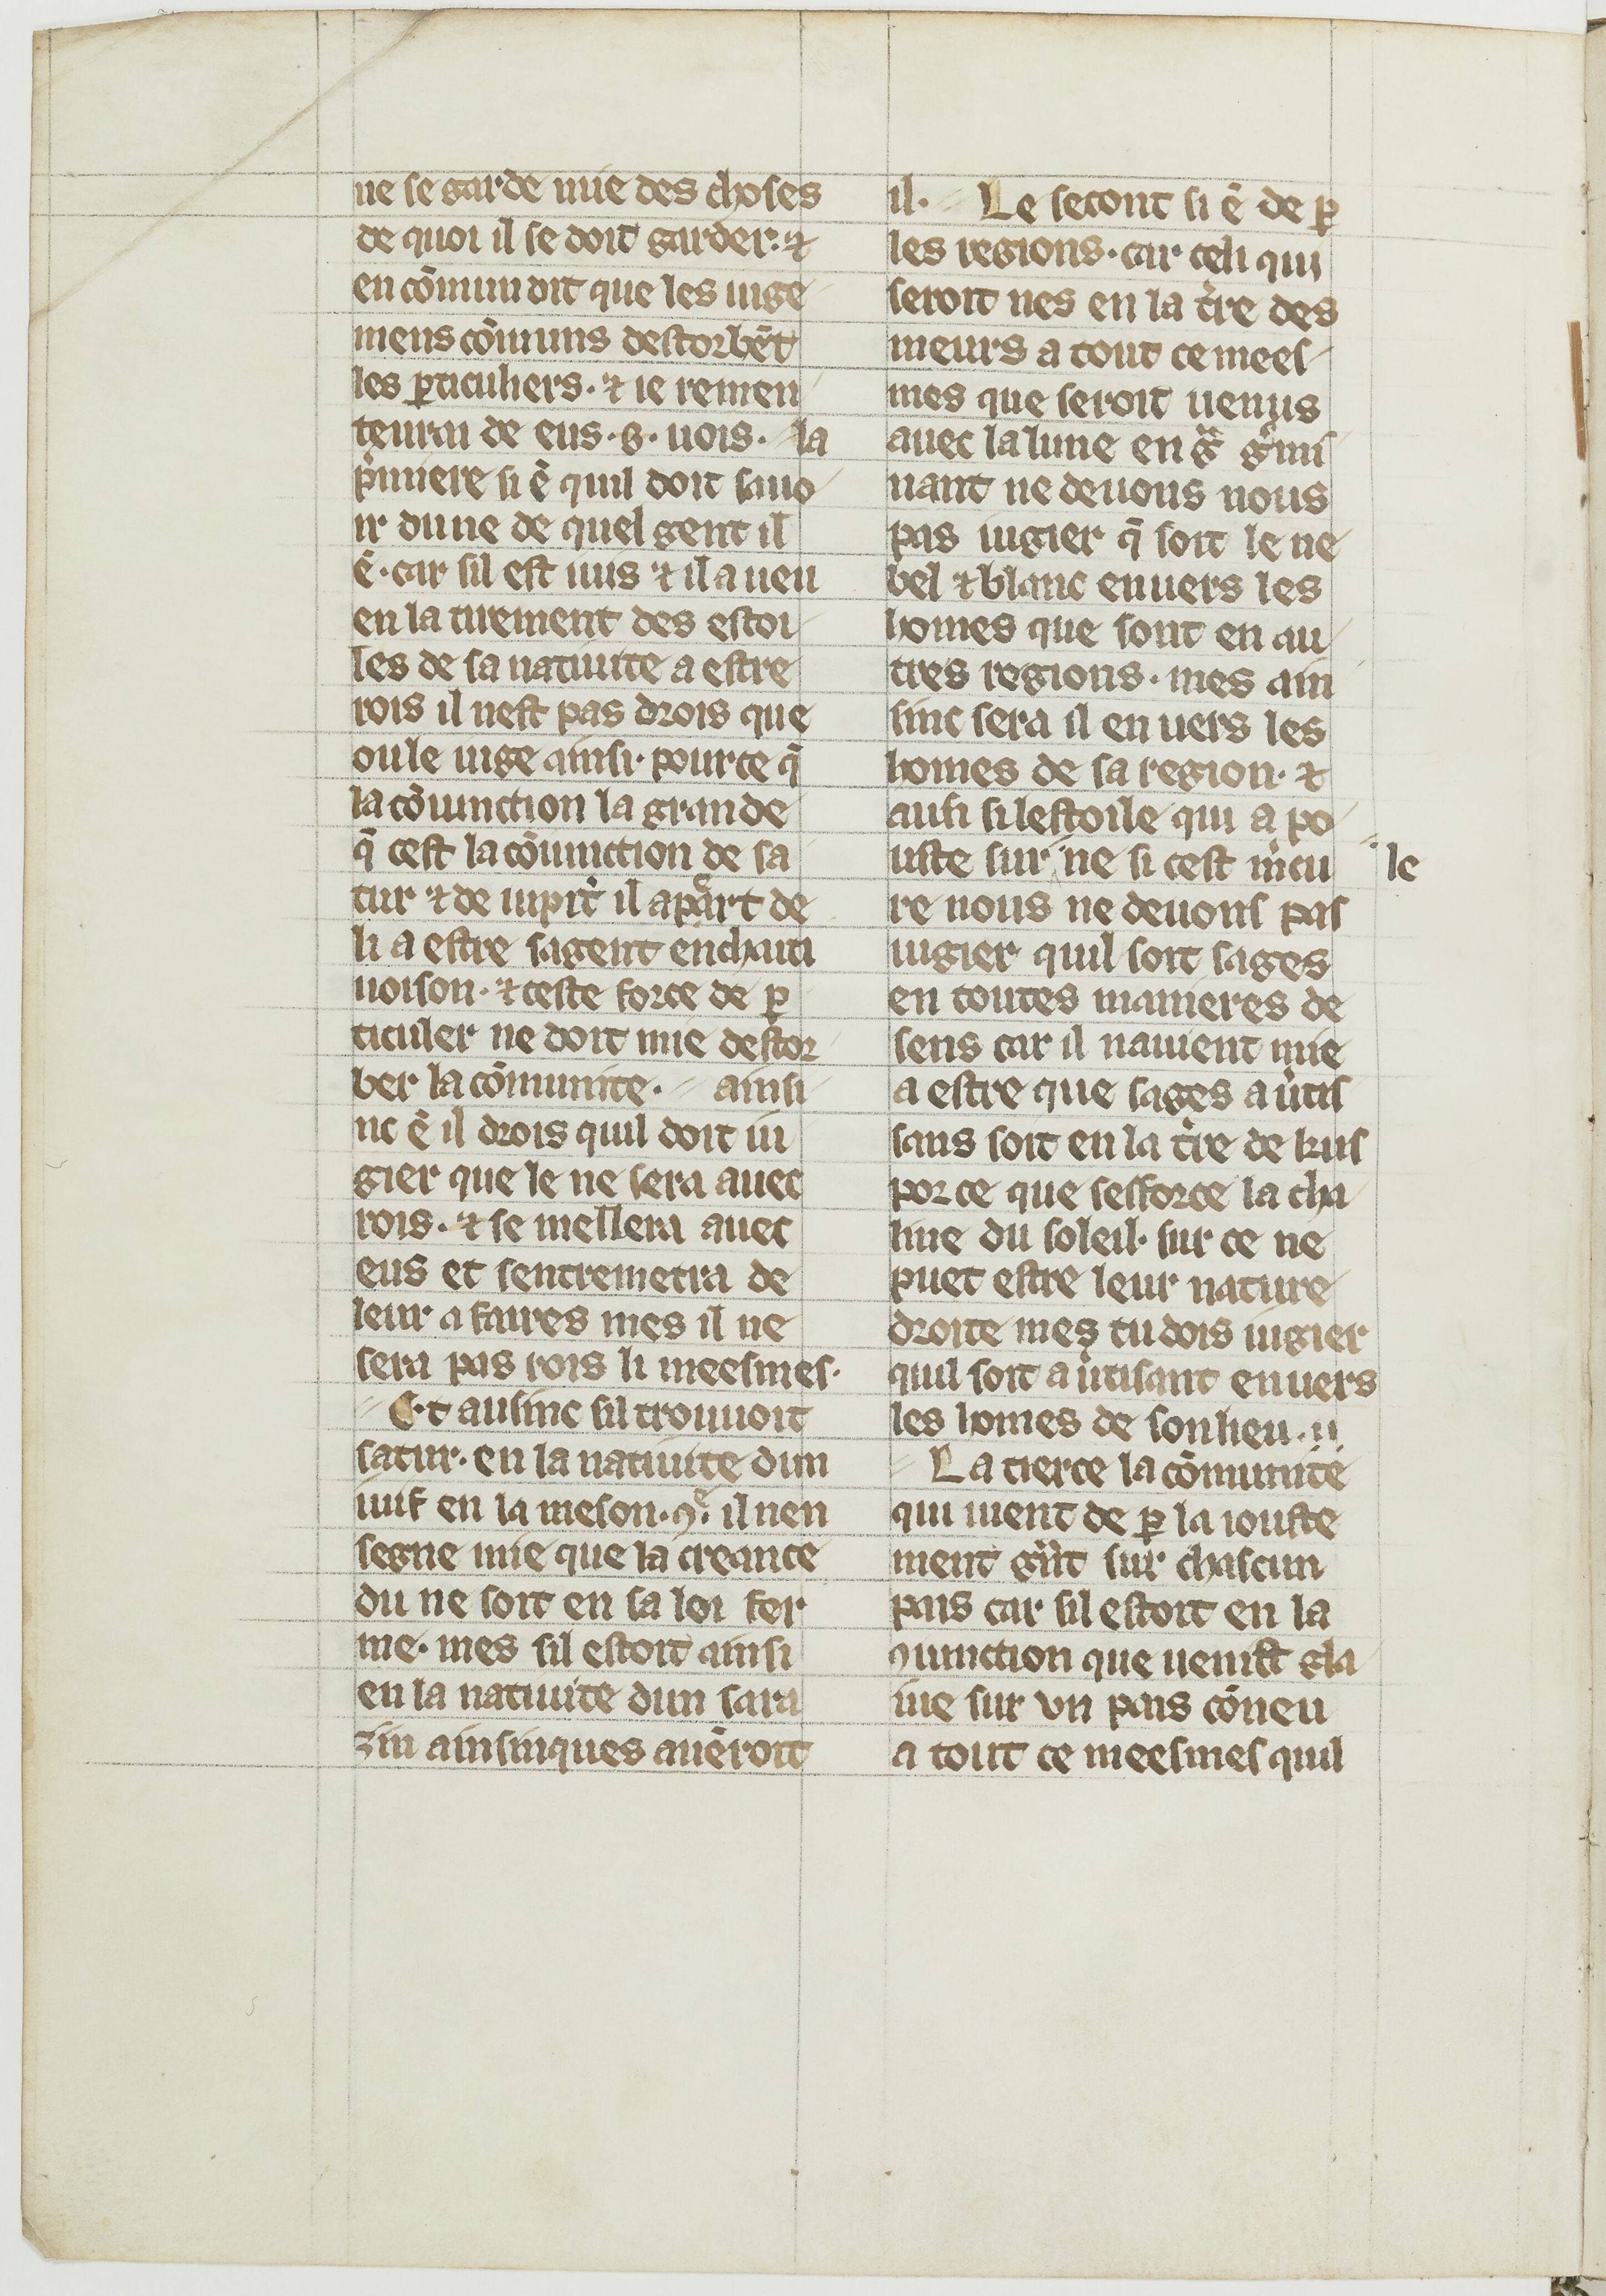 ne se garde mie des choses
de quoi il se doit garder. ⁊
en cōmun dit que les iuge
mens cōmuns destorbēt
les ꝑticuliers. ⁊ ie remen
teurai de eus .8. uois. la
p̓miere si ē quil doit sauo
ir du ne de quel gent il
ē. car sil est iuis ⁊ il a ueu
en latirement des estoi
les de sa natiuite a estre
rois il nest pas drois que
ou le iuge ainsi. pour ce q̄
la cōiunction la grande
q̄ cest la cōiunction de sa
tur ⁊ de iupit̓ il apart de
li a estre sagent enchaiti
uoison. ⁊ ceste force de ꝑ
ticuler ne doit mie destor
ber la cōmunite. ainsi
nc ē il drois quil doit iu
gier que le ne sera auec
rois. ⁊ se mellera auec
eus et sentremetra de
leur afaires mes il ne
sera pas rois li meesmes.
Et ausinc sil trouuoit
satur. en la natiuite dun
iuif en la meson .9ᵉ. il nen
segne mie que la creance
du ne soit en sa loi fer
me. mes sil estoit ainsi
en la natiuite dun sara
zin ainsinques auēroit
il. Le secont si ē de ꝑ
les regions. car celi qui
seroit nes en la t̓re des
meurs a tout ce mees
mes que seroit uenus
auec la lune en
uant ne deuons nous
pas iugier q̄ soit le ne
bel ⁊ blanc enuers les
homes que sont en au
tres regions. mes ain
sinc sera il en uers les
homes de sa region. ⁊
ausi si lestoile qui a po
uste sur ne si cest m̓cu
le
re nous ne deuons pas
iugier quil soit sages
en toutes manieres de
sens car il nauient mie
a estre que sages a u̓tis
sans soit en la t̓re de kus
por ce que sesforce la cha
line du soleil. sur ce ne
puet estre leur nature
droite mes tu dois iugier
quil soit a u̓tisant enuers
les homes de son lieu.
La tierce la cōmunite
qui uient de ꝑ la iouste
ment sur chascun
pais car sil estoit en la
ꝯiunction que uenist gla
iue sur un pais cōneu
a tout ce meesmes quil